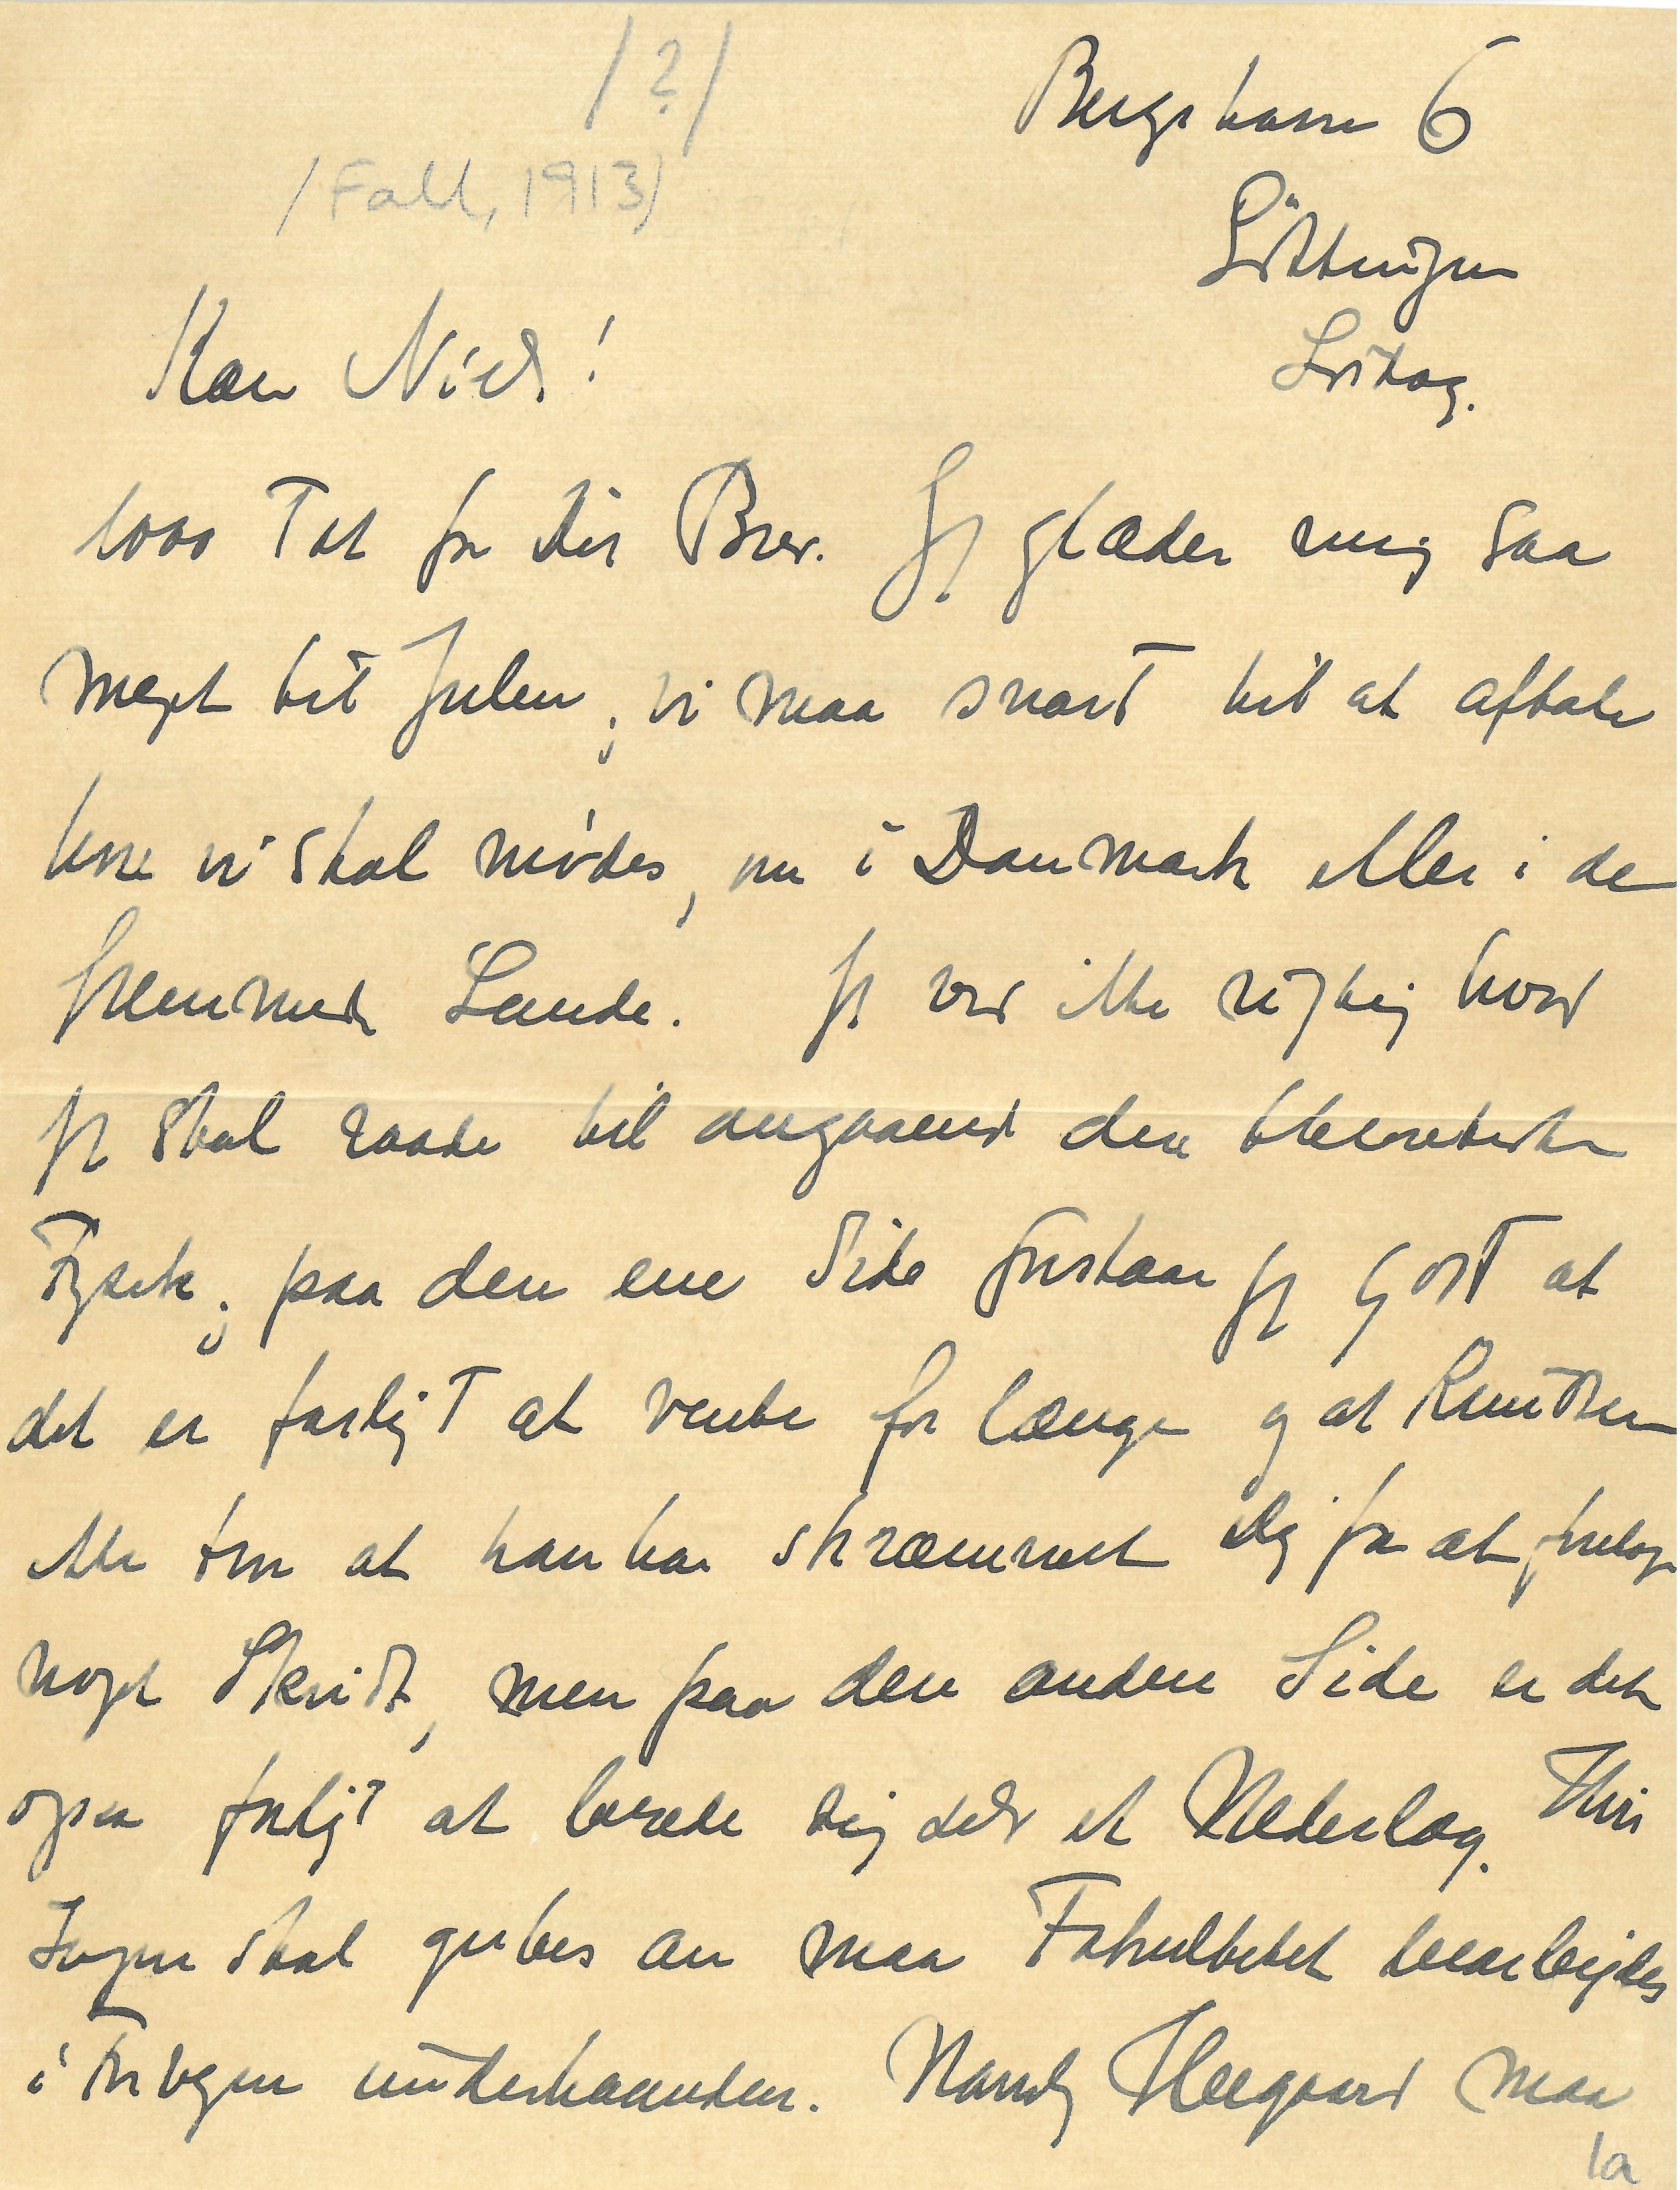 /?/
/Fall, 1913/
Bergstrasse 6
Göttingen
Lördag.
Kære Niels!
1000 Tak for Dit Brev. Jeg glæder mig saa
meget til Julen; vi maa snart til at aftale
hvor vi skal mødes, om i Danmark eller i de
fremmede Lande. Jeg ved ikke rigtig hvad
jeg skal raade til angaaende den theoretiske
Fysik; paa den ene Side forstaar jeg godt at
det er farligt at vente for længe og at Knudsen
ikke tror at han har skræmmet dig fra at foretage
noget Skridt, men paa den anden Side er det
ogsaa farligt at berede sig selv et Nederlag. Hvis
Sagen skal gribes an maa Fakultetet bearbejdes
i Forvejen underhaanden. Navnlig Heegaard maa
1a